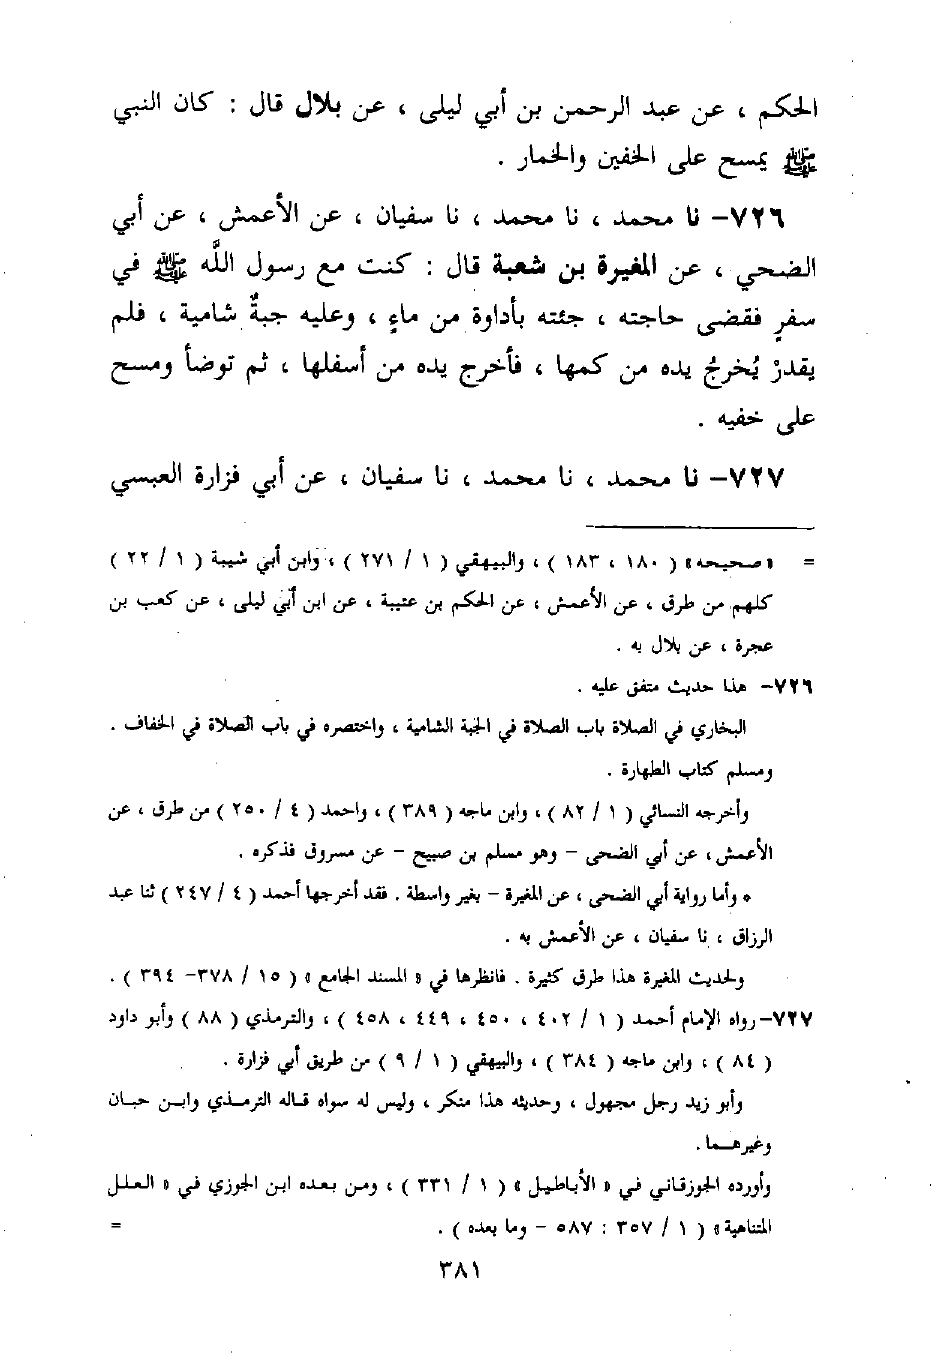 الحكم ، عن عبد الرحمن بن أبي ليلى ، عن بلال قال : كان النبي
ﷺ يمسح على الخفين والخمار .
٧٢٦- نا محمد ، نا محمد ، نا سفيان ، عن الأعمش ، عن أبي
الضحي ، عن المغيرة بن شعبة قال : كنت مع رسول اللَّه ﷺ في
سفرٍ فقضى حاجته ، جئته بأداوة من ماءٍ ، وعليه جبةٌ شامية ، فلم
يقدرْ يُخرجُ يده من كمها ، فأخرج يده من أسفلها ، ثم توضأ ومسح
على خفيه .
٧٢٧- نا محمد ، نا محمد ، نا سفيان ، عن أبي فزارة العبسي
= «صحيحه» ( ١٨٠ ، ١٨٣ ) ، والبيهقي ( ١ / ٢٧١ ) ، وابن أبي شيبة ( ١ / ٢٢ )
كلهم من طرق ، عن الأعمش ، عن الحكم بن عتيبة ، عن ابن أبي ليلى ، عن كعب بن
عجرة ، عن بلال به .
٧٢٦- هذا حديث متفق عليه .
البخاري في الصلاة باب الصلاة في الجبة الشامية ، واختصره في باب الصلاة في الخفاف .
ومسلم كتاب الطهارة .
وأخرجه النسائي ( ١ / ٨٢ ) ، وابن ماجه ( ٣٨٩ ) ، واحمد ( ٤ / ٢٥٠ ) من طرق ، عن
الأعمش ، عن أبي الضحى - وهو مسلم بن صبيح - عن مسروق فذكره .
* وأما رواية أبي الضحى ، عن المغيرة - بغير واسطة . فقد أخرجها أحمد ( ٤ / ٢٤٧ ) ثنا عبد
الرزاق ، نا سفيان ، عن الأعمش به .
ولحديث المغيرة هذا طرق كثيرة . فانظرها في « المسند الجامع » ( ١٥ / ٣٧٨- ٣٩٤ ) .
٧٢٧- رواه الإمام أحمد ( ١ / ٤٠٢ ، ٤٥٠ ، ٤٤٩ ، ٤٥٨ ) ، والترمذي ( ٨٨ ) وأبو داود
( ٨٤ ) ، وابن ماجه ( ٣٨٤ ) ، والبيهقي ( ١ / ٩ ) من طريق أبي فزارة .
وأبو زيد رجل مجهول ، وحديثه هذا منكر ، وليس له سواه قاله الترمذي وابن حبان
وغيرهما .
وأورده الجوزقاني في « الأباطيل » ( ١ / ٣٣١ ) ، ومن بعده ابن الجوزي في « العلل
المتناهية » ( ١ / ٣٥٧ : ٥٨٧ - وما بعده ) . =
٣٨١